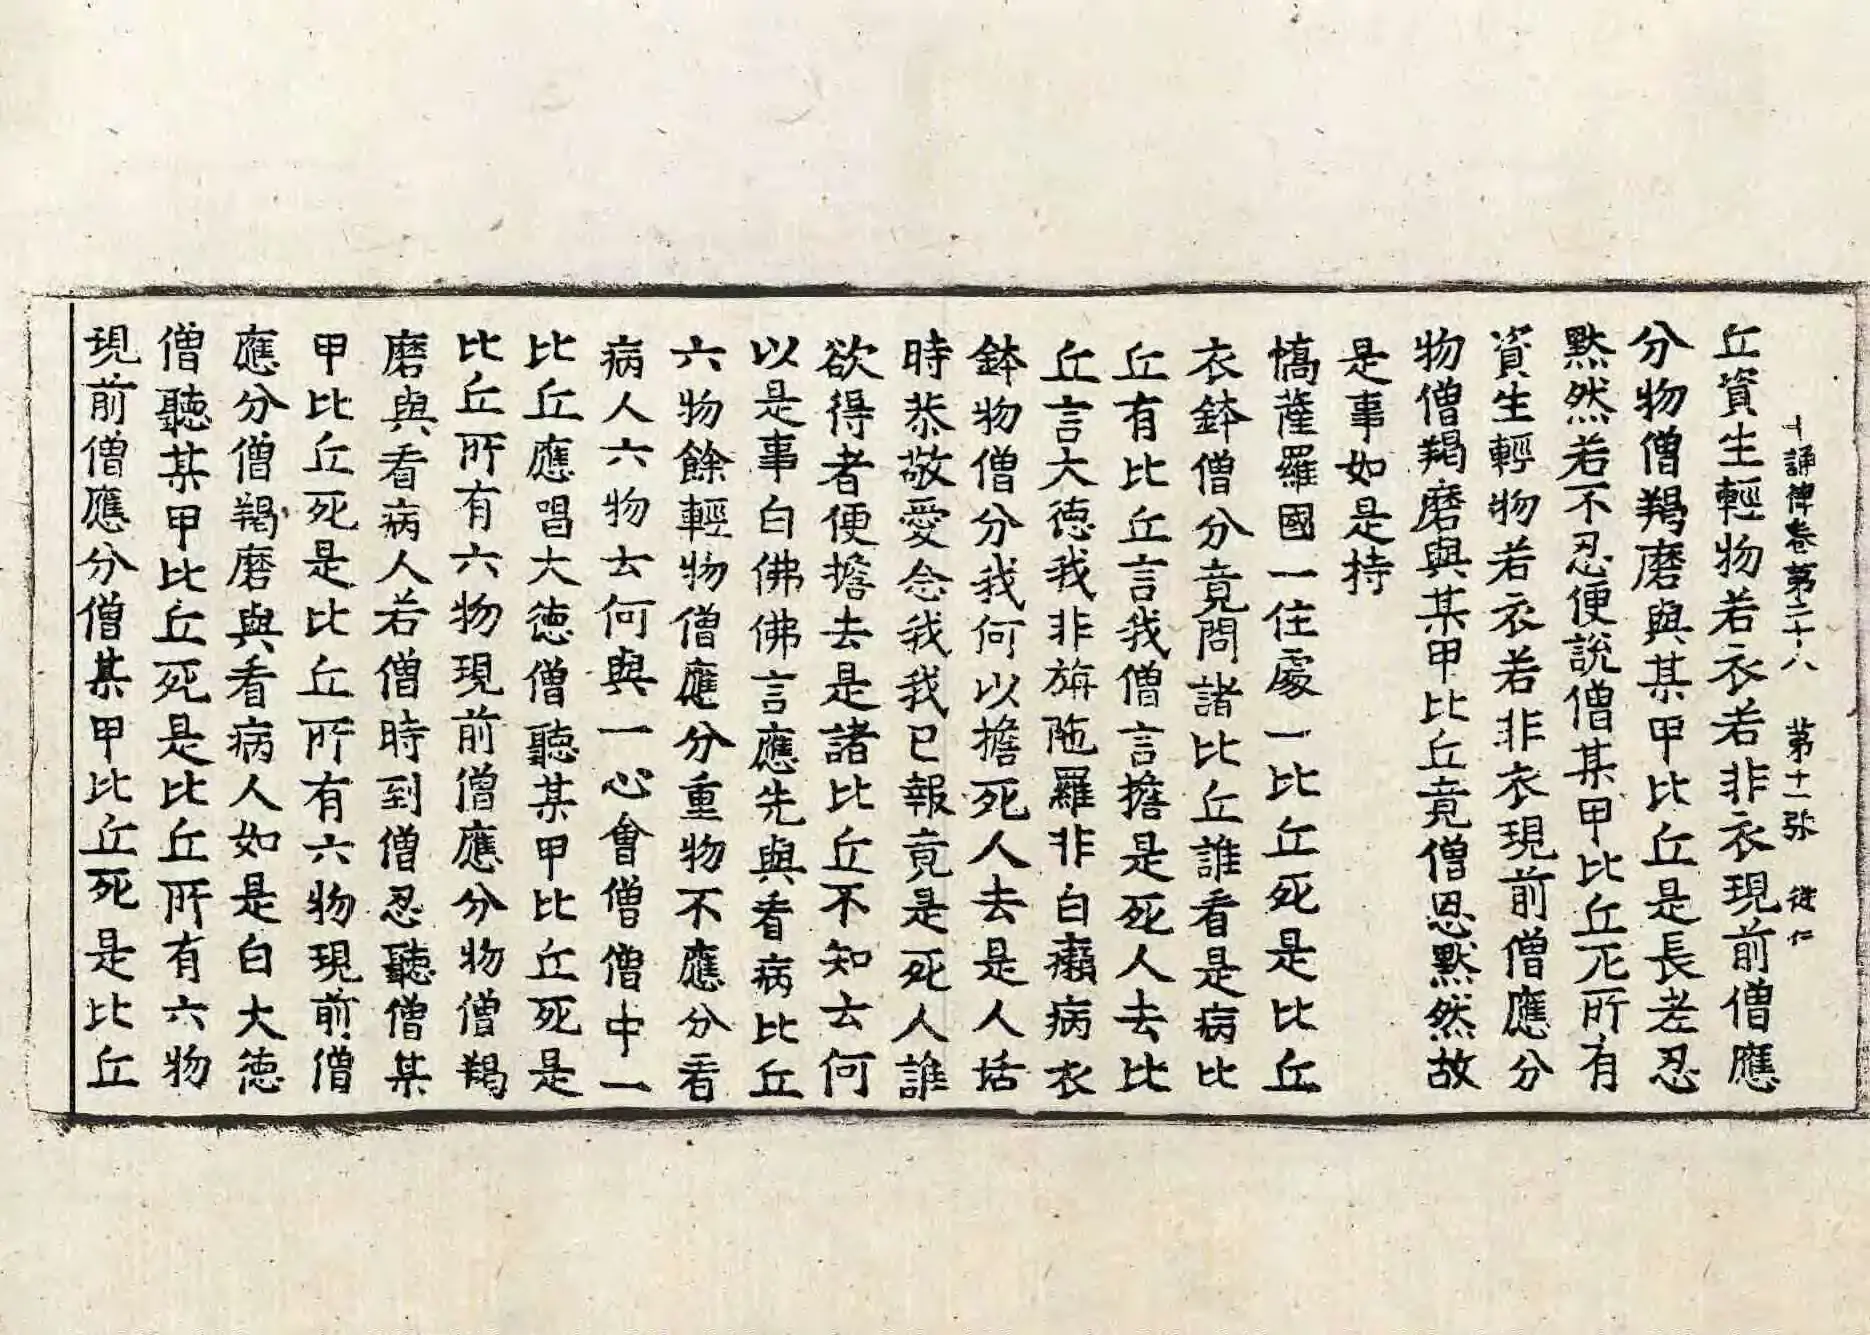 十誦律卷第二十八 第十一張 從仁
丘資生輕物若衣若非衣現前僧應
分物僧羯磨與某甲比丘是長老忍
黙然若不忍便說僧某甲比丘死所有
資生輕物若衣若非衣現前僧應分
物僧羯磨與某甲比丘竟僧忍黙然故
是事如是持
憍薩羅國一住處一比丘死是比丘
衣鉢僧分竟問諸比丘誰看是病比
丘有比丘言我僧言擔是死人去比
丘言大德我非旃陁羅非白癩病衣
鉢物僧分我何以擔死人去是人活
時恭敬愛念我我已報竟是死人誰
欲得者便擔去是諸比丘不知云何
以是事白佛佛言應先與看病比丘
六物餘輕物僧應分重物不應分看
病人六物云何與一心會僧僧中一
比丘應唱大德僧聽某甲比丘死是
比丘所有六物現前僧應分物僧羯
磨與看病人若僧時到僧忍聽僧某
甲比丘死是比丘所有六物現前僧
應分僧羯磨與看病人如是白大德
僧聽某甲比丘死是比丘所有六物
現前僧應分僧某甲比丘死是比丘